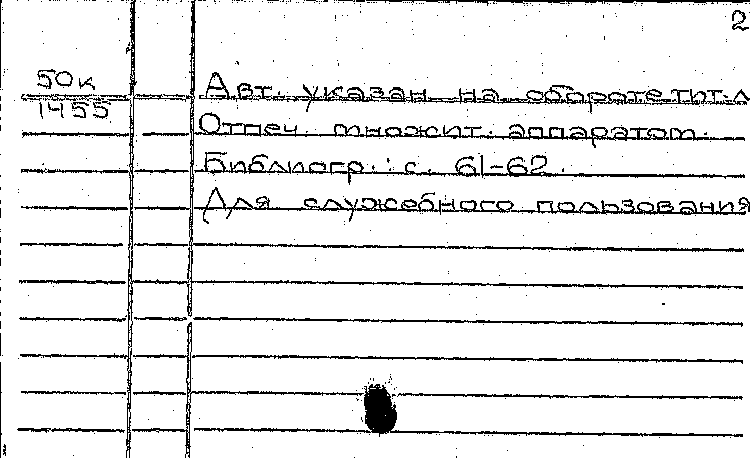 2
50к
1455
Авт. указан на обороте тит. л
Отпеч. множит. аппаратом.
Библиогр.: с. 61-62.
Для служебного пользования